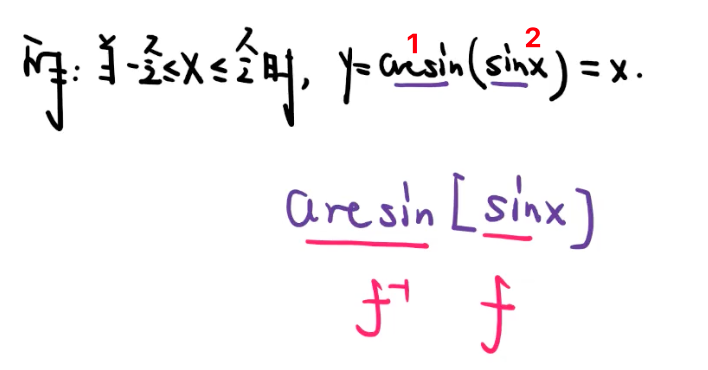 1 2
例: 当-π/2≤x≤π/2时, y=arcsin(sinx)=x.
arcsin[sinx]
f⁻¹ f